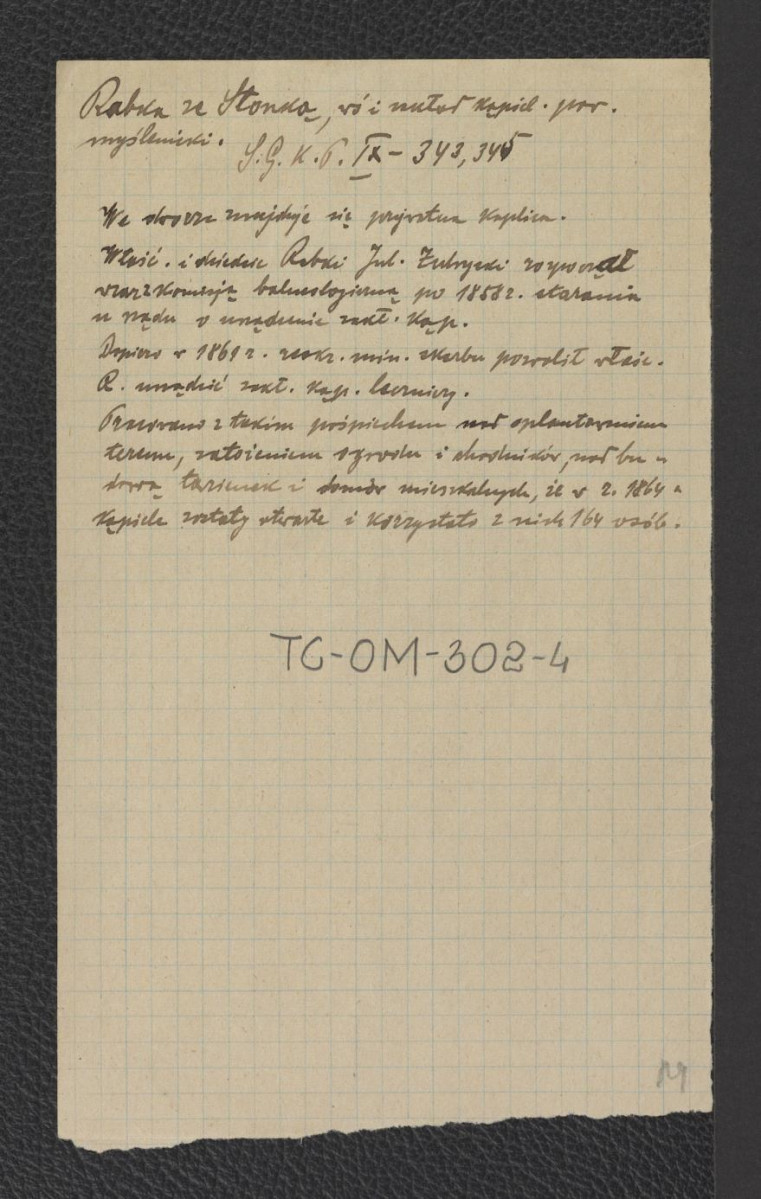 Rabka ze Słonką, wś i zakład kąpiel. pow.
myślenicki.
S.G.K.P. IX – 343, 345
We dworze znajduje się prywatna kaplica.
Właść. i dziedzic Rabki Jul. Zubrzycki rozpoczął
wraz z komisją balneologiczną po 1858 r. starania
u rządu o urządzenie zakł. kąp.
Dopiero w 1861 r. reskr. min. skarbu pozwolił właśc.
R. urządzić zakł. kąp. leczniczy.
Pracowano z takim pośpiechem nad oplantowaniem
terenu, założeniem ogrodu i chodników, nad bu-
dową łazienek i domów mieszkalnych, że w r. 1864
kąpiele zostały otwarte i korzystało z nich 164 osób.
TG-OM-302-4